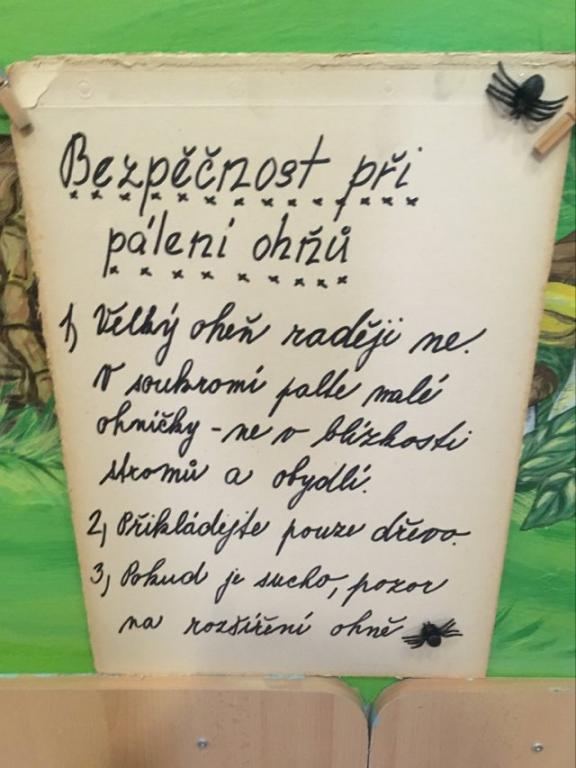 Bezpěčnost při
pálení ohňů
1, Velký oheň raději ne.
V soukromí palte malé
ohníčky - ne v blízkosti
stromů a obydlí.
2, Přikládejte pouze dřevo.
3, Pokud je sucho, pozor
na rozšíření ohně